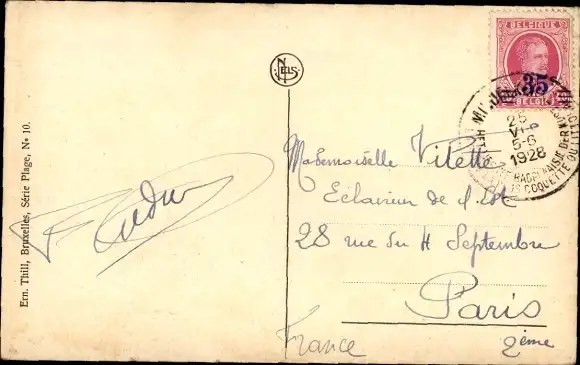 BELGIQUE
35
BELGI
NELS
25
VI
5-6
1928
COQUETTE
Mademoiselle Vilette
Eclaireur de l'Est
28 rue du 4 Septembre
Paris
2ème
France
Ern. Thill, Bruxelles, Série Plage, No 10.